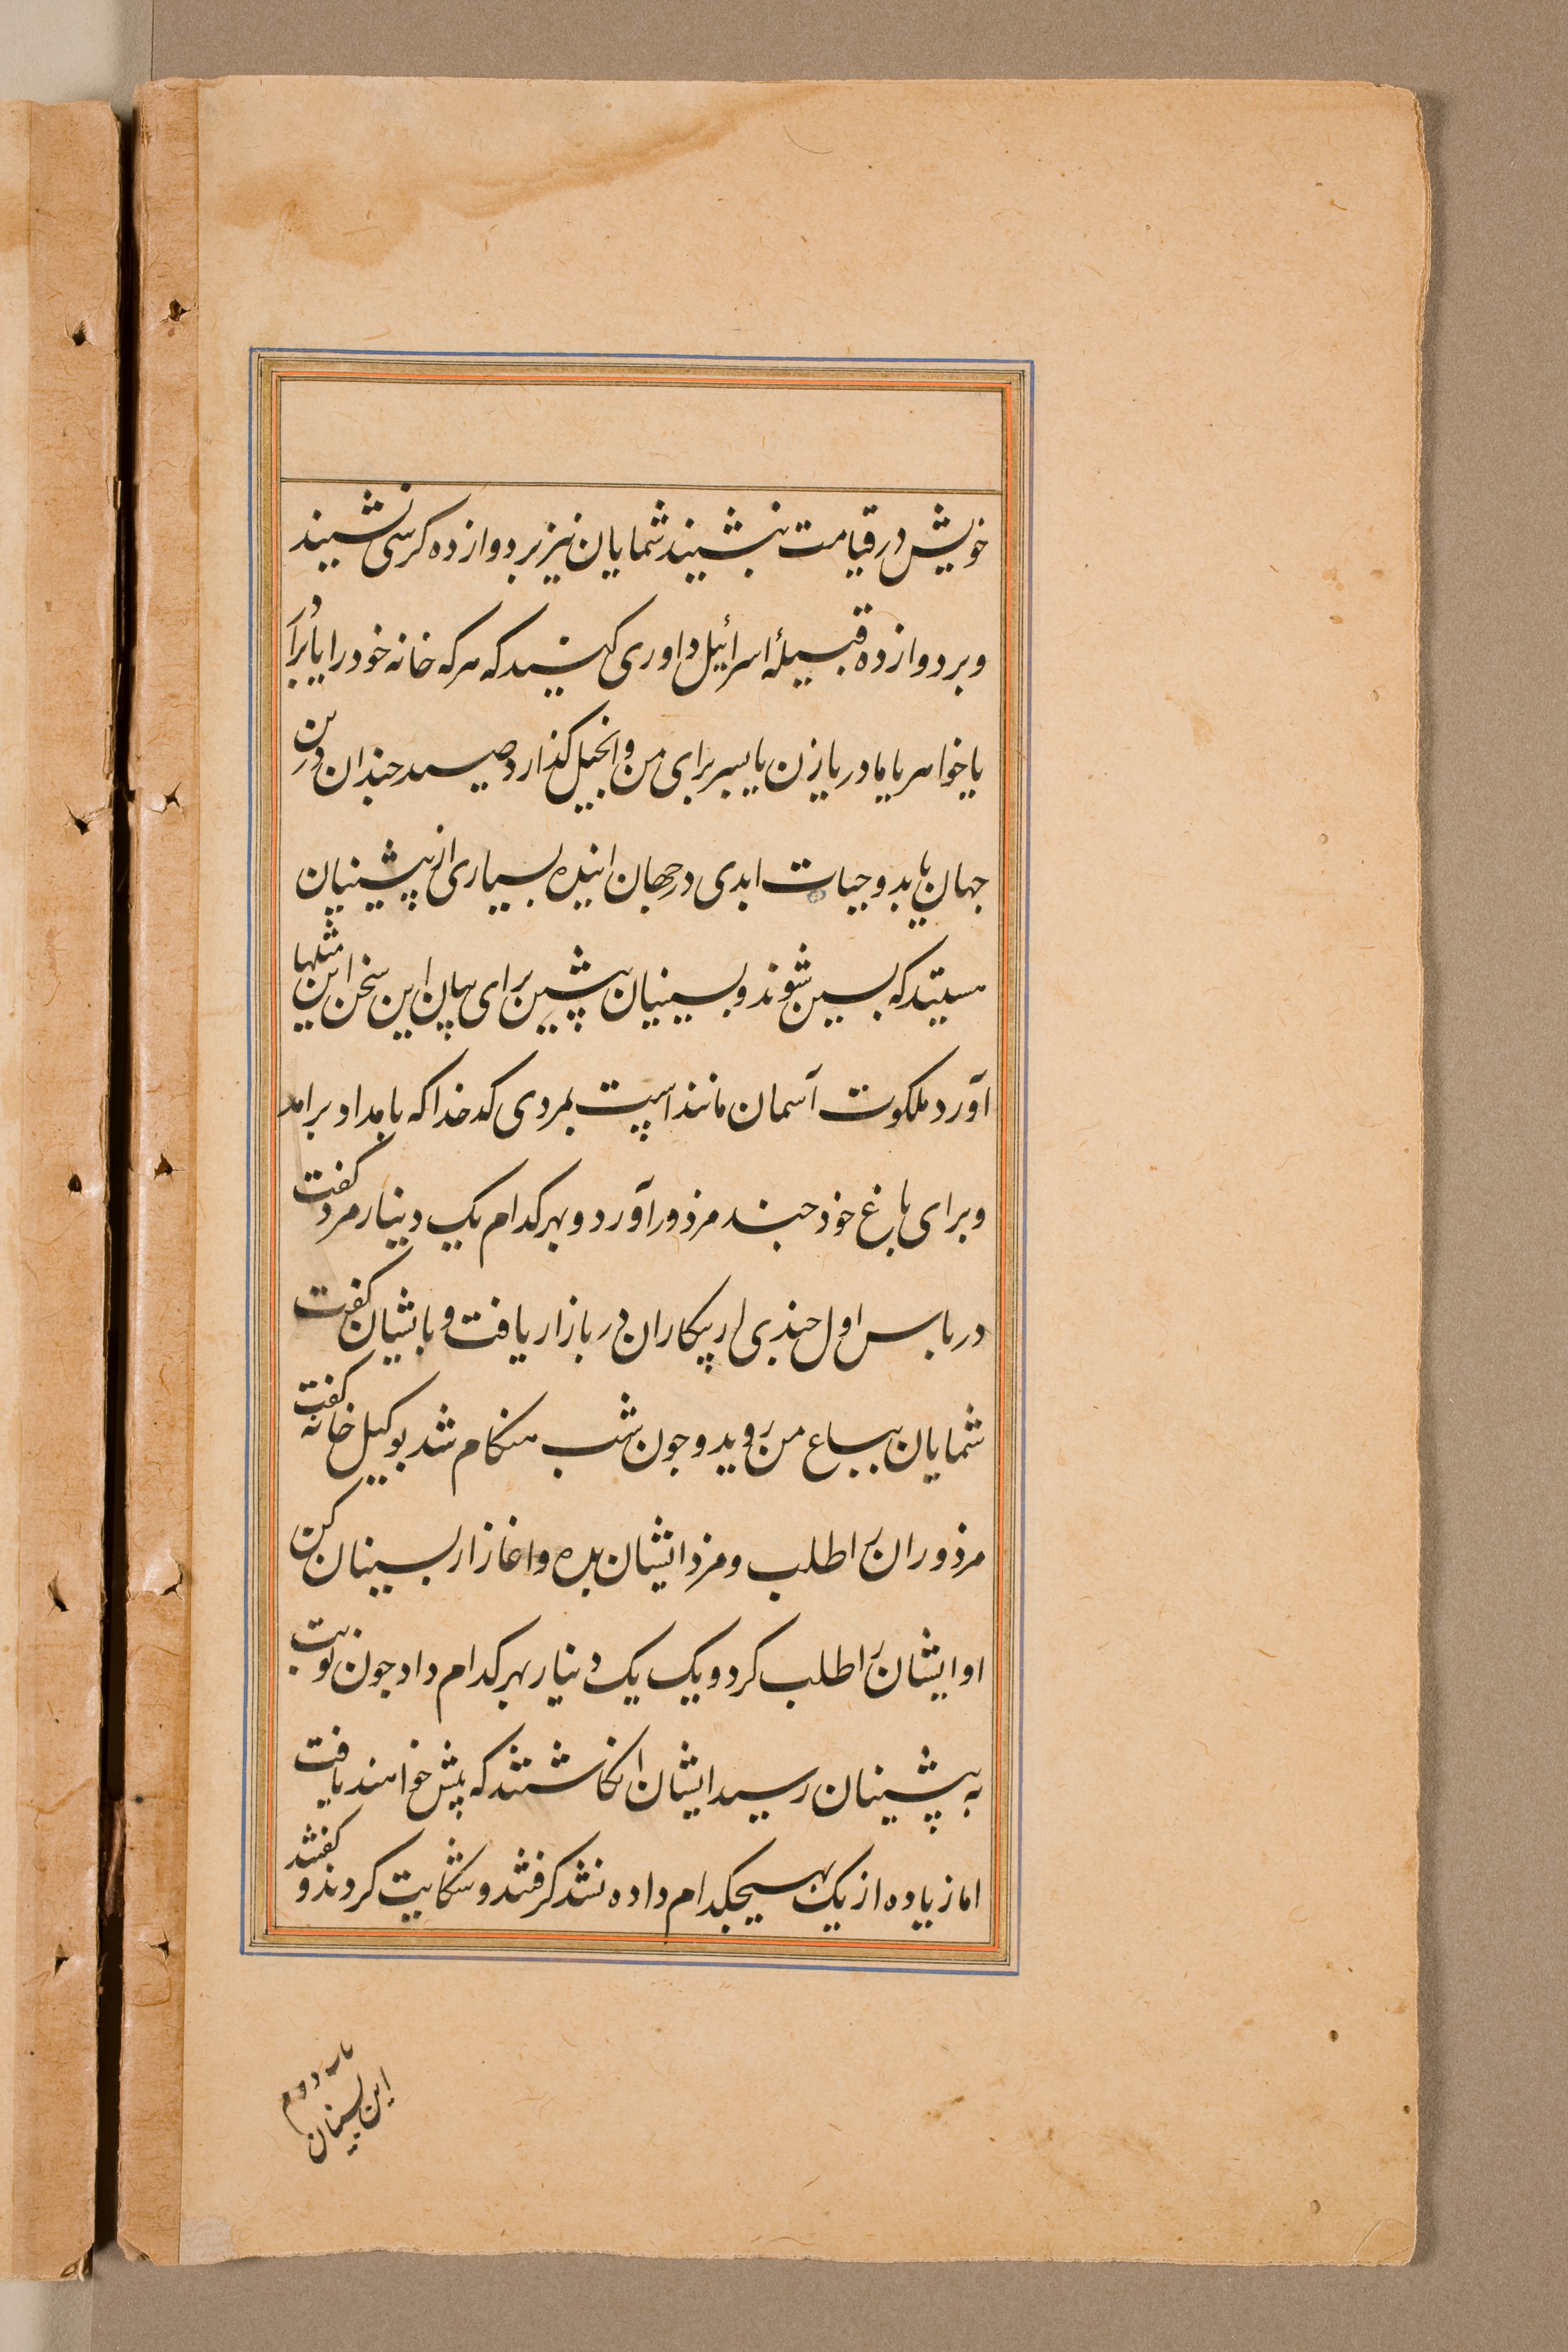 خویش در قیامت بنشیند شمایان نیز بر دوازده کرسی نشینید
و بر دوازده قبیلهٔ اسرائیل داوری کنید که هر که خانه خود را یا برادر
یا خواهر یا مادر یا زن یا پسر برای من و انجیل گذارد صد چندان درین
جهان یابد و حیات ابدی در جهان اینده بسیاری از پیشینیان
هستند که پسین شوند و پسینیان پیشین برای بیان این سخن این مثلها
آورد ملکوت آسمان مانند است بمردی کدخدا که بامداد برامد
و برای باغ خود چند مزدور آورد و بهر کدام یک دینار مزد گفت
در پاس اول چندی از بیکاران در بازار یافت و بایشان گفت
شمایان بباغ من روید و چون شب هنگام شد بوکیل خانه گفت
مزدوران را طلب و مزد ایشان بده و اغاز از پسینان کن
او ایشان را طلب کرد و یک یک دینار بهر کدام داد چون نوبت
به پیشینان رسید ایشان انگاشتند که بیش خواهند یافت
اما زیاده از یک بهیچکدام داده نشد گرفتند و شکایت کردند و گفتند
این پسینان